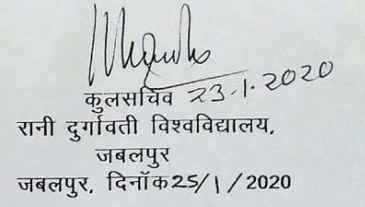 कुलसचिव 23.1.2020
रानी दुर्गावती विश्वविद्यालय,
जबलपुर
जबलपुर, दिनॉक 25/1/2020